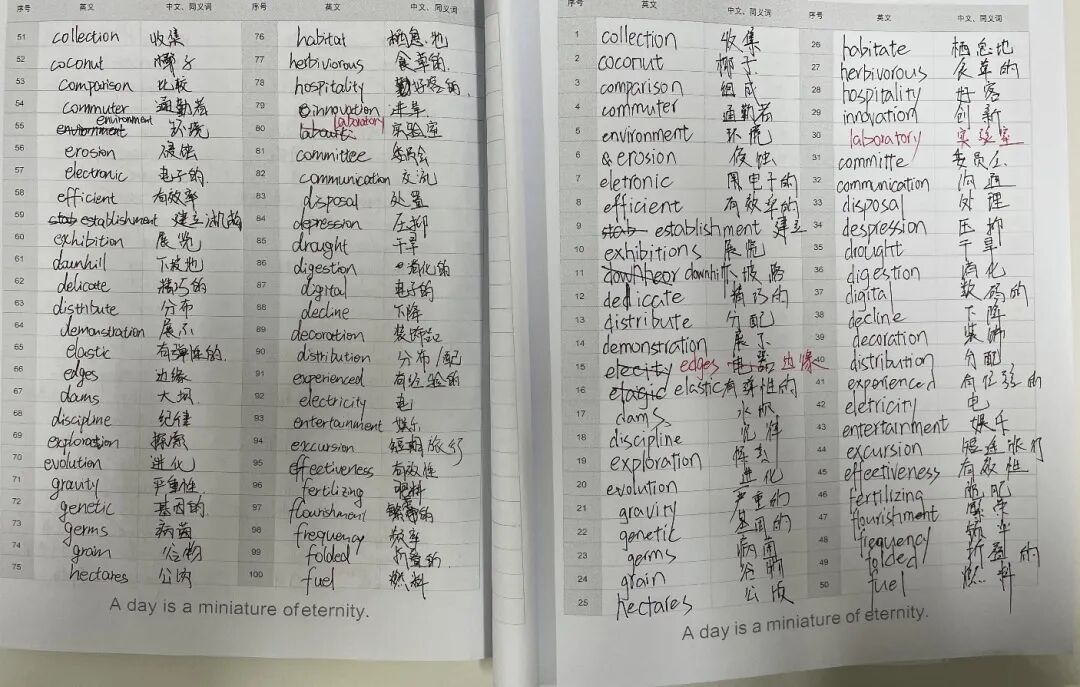 序号 英文 中文、同义词 序号 英文 中文、同义词
51 collection 收集 76 habitat 栖息地
52 coconut 椰子 77 herbivorous 食草的
53 comparison 比较 78 hospitality 好客的
54 commuter 通勤者 79 innovation 改革
55 environment environment 环境 80 laboratory 实验室
56 erosion 侵蚀 81 committee 委员会
57 electronic 电子的 82 communication 交流
58 efficient 有效率 83 disposal 处置
59 establishment 建立 机构 84 depression 压抑
60 exhibition 展览 85 drought 干旱
61 daunhill 下坡地 86 digestion 消化的
62 delicate 精巧的 87 digital 电子的
63 distribute 分布 88 decline 下降
64 demonstration 展示 89 decoration 装饰品
65 elastic 有弹性的 90 distribution 分布/配
66 edges 边缘 91 experienced 有经验的
67 dams 大坝 92 electricity 电
68 discipline 纪律 93 entertainment 娱乐
69 exploration 探索 94 excursion 短期旅行
70 evolution 进化 95 effectiveness 有效性
71 gravity 严重性 96 fertilizing 肥料
72 genetic 基因的 97 flourishment 繁荣的
73 germs 病菌 98 frequency 频率
74 grain 谷物 99 folded 折叠的
75 hectares 公顷 100 fuel 燃料
A day is a miniature of eternity.
序号 英文 中文、同义词 序号 英文 中文、同义词
1 collection 收集 26 habitate 栖息地
2 coconut 椰子 27 herbivorous 食草的
3 comparison 组成 28 hospitality 好客
4 commuter 通勤者 29 innovation 创新
5 environment 环境 30 laboratory 实验室
6 & erosion 侵蚀 31 committe 委员会
7 eletronic 用电子的 32 communication 沟通
8 efficient 有效率的 33 disposal 处理
9 stab establishment 建立 34 despression 压抑
10 exhibitions 展览 35 drought 干旱
11 downhear downhill 下坡路 36 digestion 消化
12 dedicate 精巧的 37 digital 数码的
13 distribute 分配 38 decline 下降
14 demonstration 展示 39 decoration 装饰
15 elecity edges 电器 边缘 40 distribution 分配
16 elagic elastic 有弹性的 41 experienced 有经验的
17 dams 水坝 42 eletricity 电
18 discipline 纪律 43 entertainment 娱乐
19 exploration 探索 44 excursion 短途旅行
20 evolution 进化 45 effectiveness 有效性
21 gravity 严重的 46 fertilizing 施肥
22 genetic 基因的 47 flourishment 繁荣
23 germs 病菌 48 frequency 频率
24 grain 谷物 49 folded 折叠的
25 hectares 公顷 50 fuel 燃料
A day is a miniature of eternity.